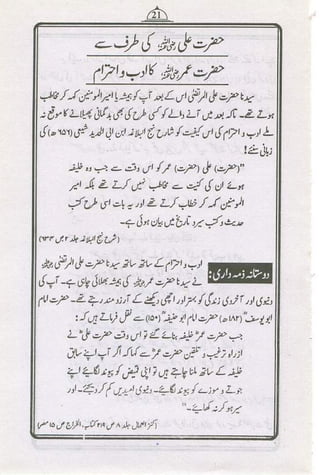 21
حضرت علی رضی اللہ عنہ کی طرف سے
حضرت عمر رضی اللہ عنہ کا ادب و احترام
سیدنا حضرت علی المرتضی اس کے بعد آپ کو ہمیشہ یا امیر المومنین کہہ کر مخاطب
ہوتے تھے۔ تاکہ بعد میں آنے والے کو کسی طرح کی بھی بدگمانی پھیلانے کا موقع نہ
ملے ادب و احترام کی اس کیفیت کو شارح نہج البلاغہ ابن ابی الحدید شیعی (۶۵۶ھ) کی
زبانی سنئے!
"(حضرت) علی (حضرت) عمر کو اس وقت سے جب وہ خلیفہ
ہوئے ان کی کنیت سے مخاطب نہیں کرتے تھے بلکہ امیر
المومنین کہہ کر خطاب کرتے تھے اور یہ بات اسی طرح کتب
حدیث و کتب سیر و تاریخ میں بیان ہوئی ہے۔
(شرح نہج البلاغہ جلد ۲ ص ۶۳۴)
دوستانہ ذمہ داری:
ادب و احترام کے ساتھ ساتھ سیدنا حضرت علی المرتضی
نے سیدنا حضرت عمر کی ہمیشہ بھلائی چاہی ہے۔ آپ کی
دنیوی اور آخروی زندگی کو بہتر اور اچھی دیکھنے کے آرزو مند رہتے تھے۔ حضرت امام
ابو یوسف (۱۸۲ھ) حضرت امام ابو حنیفہ (۱۵۰ھ) سے نقل فرماتے ہیں کہ:
جب حضرت عمر خلیفہ بنائے گئے تو اس وقت حضرت علی نے
از راہ ترغیب و تلقین حضرت عمر سے کہا کہ اگر آپ اپنے سابق
خلیفہ کے ساتھ ملنا چاہتے ہیں تو اپنی قمیض کو پیوند لگائیے اپنے
جوتے و موزے کو پیوند لگائیے۔ دنیوی امیدیں کم کر دیجئے۔ اور
سیر ہو کر نہ کھائیے۔"
(کنز العمال جلد ۸ ص ۲۱۹ کتاب الخراج ص ۱۵ مصر)